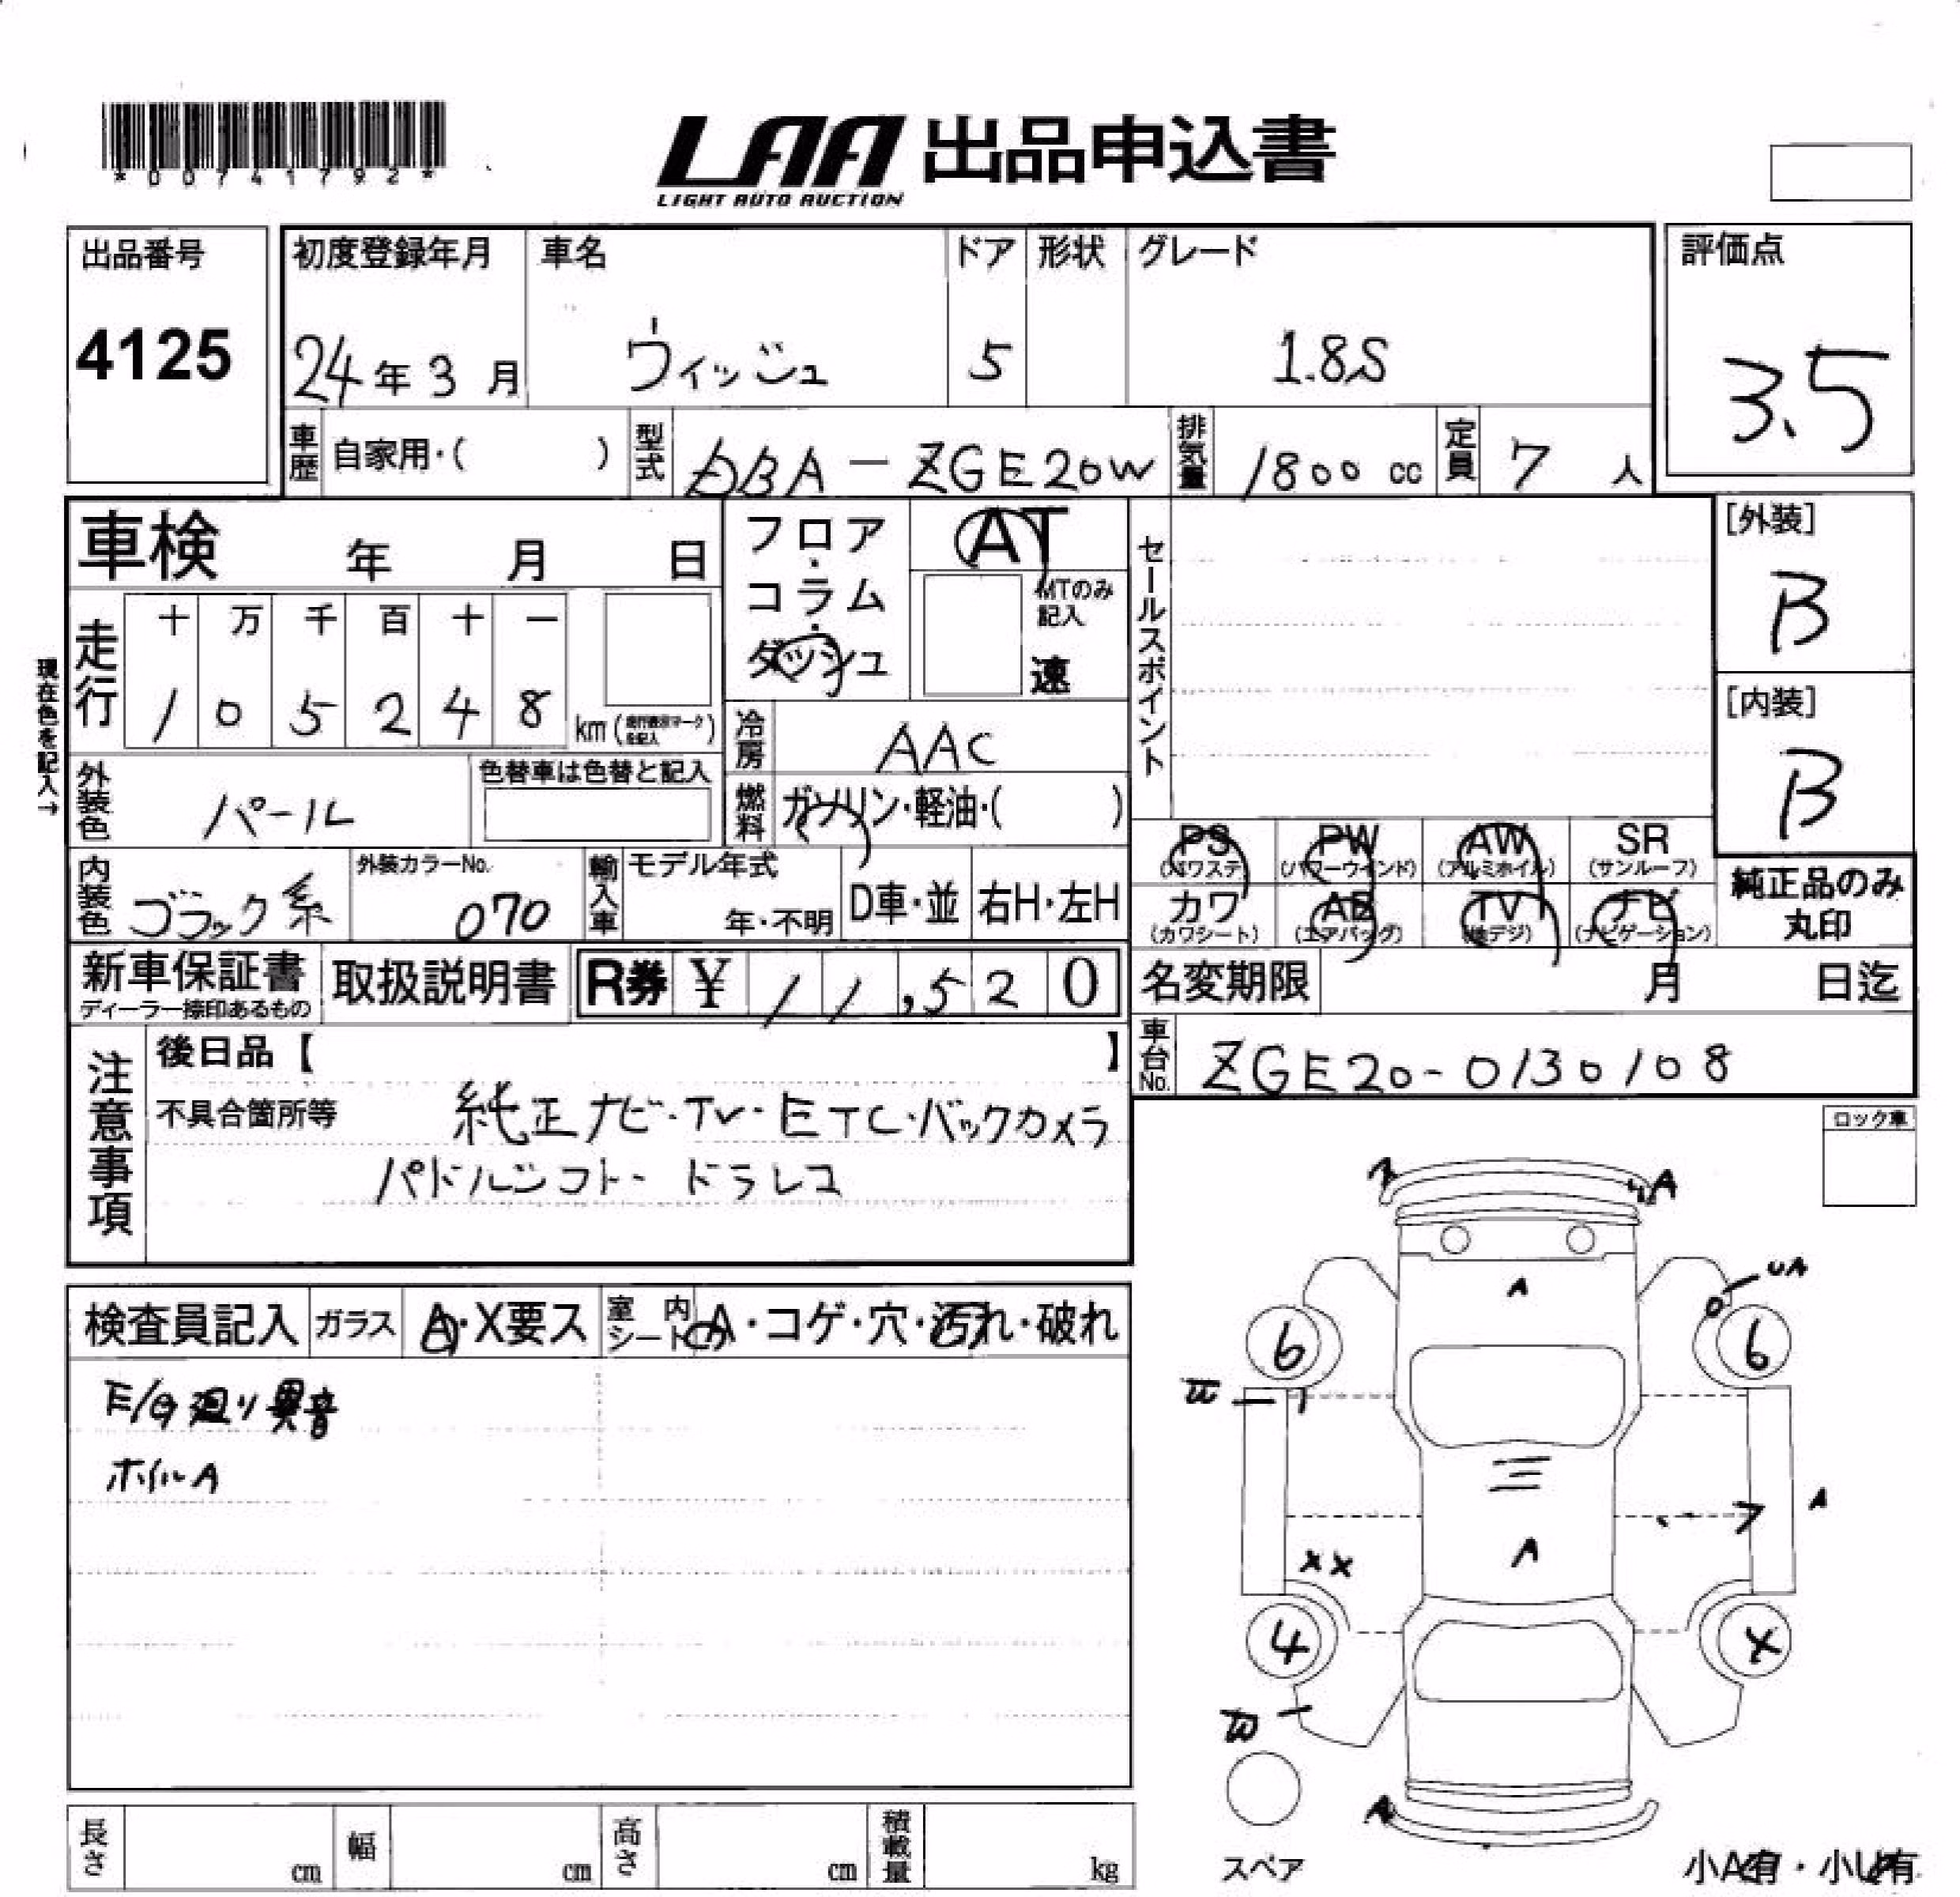 *00741792*
LAA 出品申込書
LIGHT AUTO AUCTION
出品番号
4125
初度登録年月 車名 ドア 形状 グレード
24年3月 ウィッシュ 5 1.8S
評価点
3.5
車歴 自家用・( ) 型式 DBA-ZGE20W 排気量 1800cc 定員 7人
車検 年 月 日
フロア・コラム・ダッシュ
AT
MTのみ記入
速
セールスポイント
[外装]
B
[内装]
B
現在色を記入→
走行
十 万 千 百 十 一
1 0 5 2 4 8
km(走行表示マークを記入)
冷房 AAC
外装色 パール
色替車は色替と記入
燃料 ガソリン・軽油・( )
PS (パワステ) PW (パワーウインド) AW (アルミホイル) SR (サンルーフ)
カワ (カワシート) AB (エアバッグ) TV (地デジ) ナビ (ナビゲーション)
純正品のみ丸印
内装色 ブラック系
外装カラーNo.
070
輸入車 モデル年式
年・不明
D車・並 右H・左H
新車保証書
ディーラー捺印あるもの
取扱説明書
R券 ¥ 11,520
名変期限 月 日迄
車台No. ZGE20-0130108
注意事項
後日品【 】
不具合箇所等 純正ナビ・TV・ETC・バックカメラ
パドルシフト・ドラレコ
ロック車
検査員記入 ガラス A・X要ス 室内シート A・コゲ・穴・汚れ・破れ
E/G廻り異音
ホイルA
A
A
UA
6
6
A
A
XX
4
A
スペア
小A有・小U有
長さ cm 幅 cm 高さ cm 積載量 kg